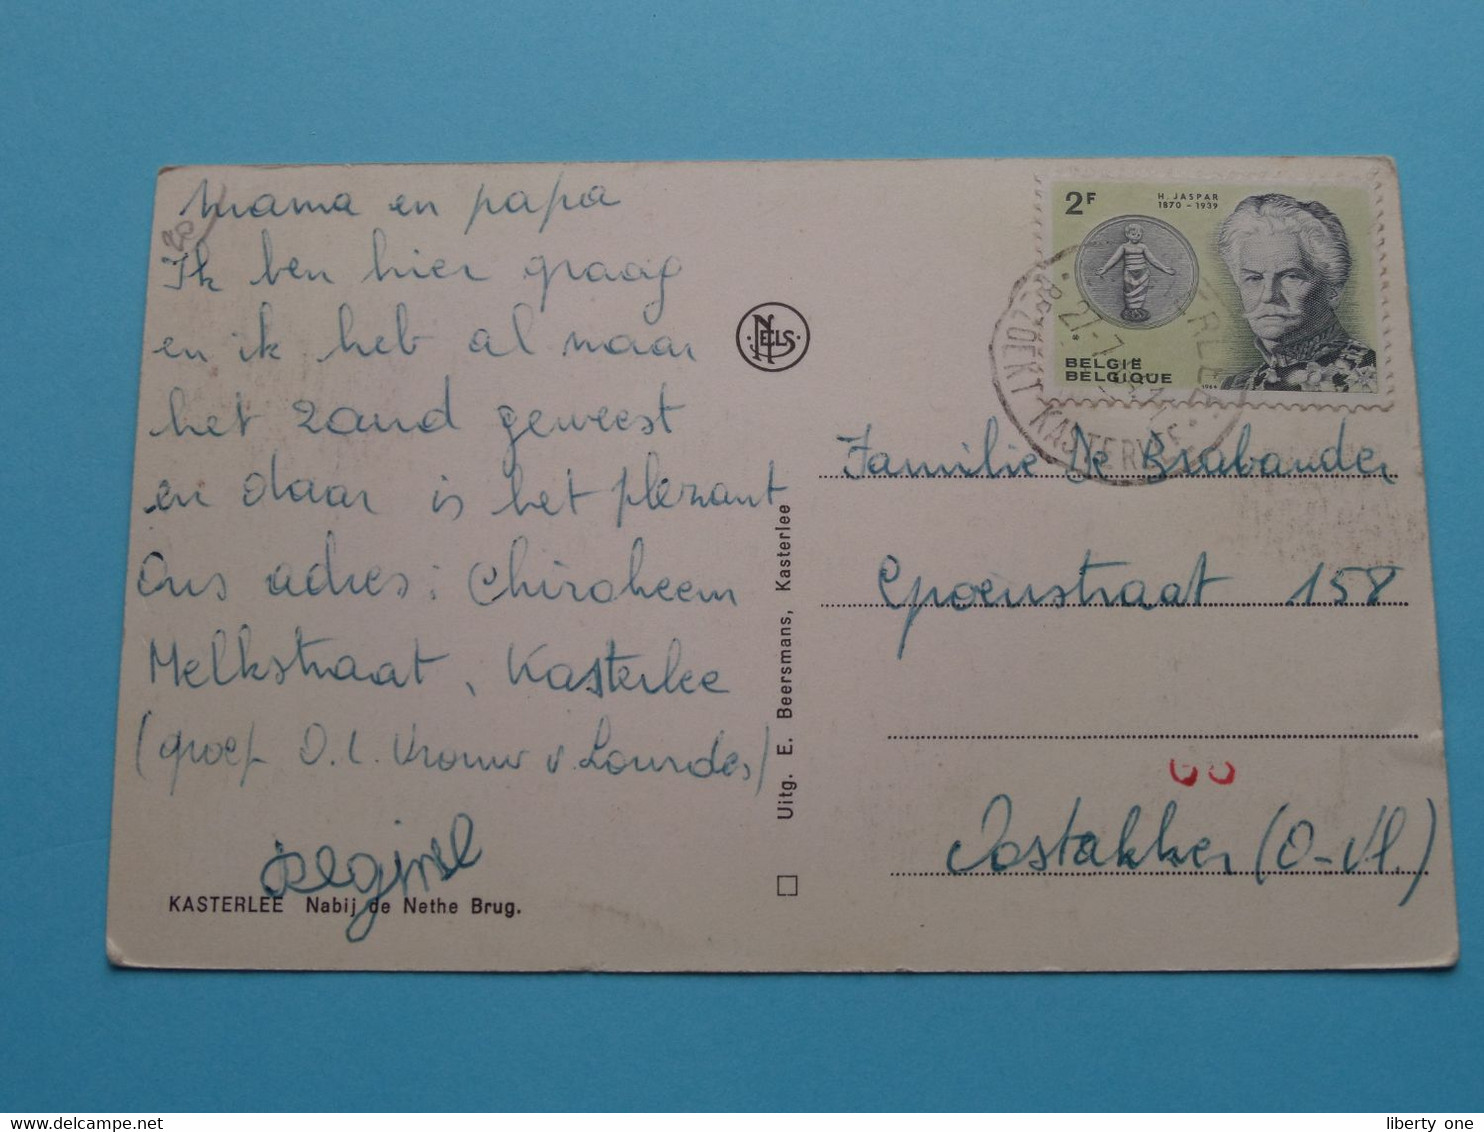 Mama en papa
Ik ben hier graag
en ik heb al naar
het zand geweest
en daar is het plezant
Ons adres: Chiroheem
Melkstraat, Kasterlee
(groep O.L. Vrouw v. Lourdes)
KASTERLEE Nabij de Nethe Brug.
NELS
Uitg. E. Beersmans, Kasterlee
2F
H. JASPAR
1870 - 1939
BELGIË
BELGIQUE
BEZOEKT KASTERLEE
27-7
Familie De Brabander
Groenstraat 158
Oostakker (O-Vl.)
liberty one